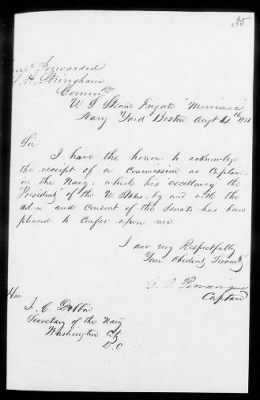 35
Forwarded
S. H. Stringham
Comm
U. S. Steam Frigate "Minnesota"
Navy Yard Boston Augt
Sir
I have the honor to acknowledge
the receipt of a Commission as Captain
in the Navy, which his excellency the
"President" of the U. States, by and with the
advice and Consent of the Senate has been
pleased to confer upon me.
I am very Respectfully
Your Obedient Servant
Captain
Hon
J. C. Dobbin
Secretary of the Navy
Washington City
D. C.